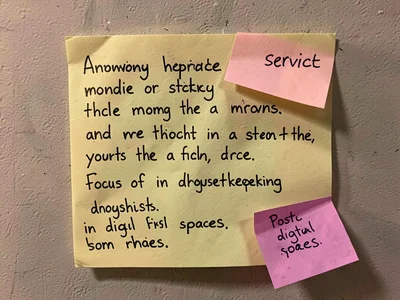 Anowony hepriate
mondie or stcky
thcle momg the a mrowns.
and we thocht in a steon + the,
yourts the a fich, drce.
Focus of in dhousetkeepeking
dnoyshists.
in digil fixsl spaces.
bom rhaes.
Servict
Postc
digtul
spaces.